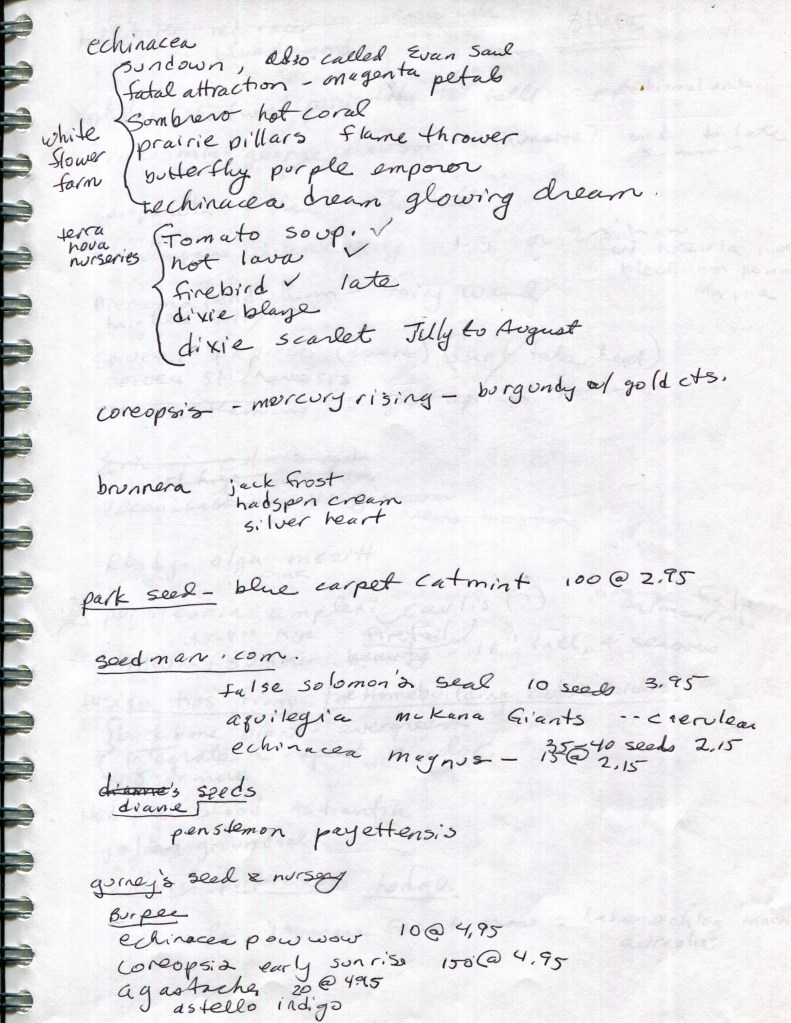 echinacea
sundown, also called Evan Saul
fatal attraction - magenta petals
sombrero hot coral
prairie pillars flame thrower
butterfly purple emporer
echinacea dream glowing dream.
white
flower
farm
terra
nova
nurseries
Tomato soup. ✓
hot lava ✓
firebird ✓ late
dixie blaze
dixie scarlet July to August
coreopsis - mercury rising - burgundy w/ gold cts.
brunnera jack frost
hadspen cream
silver heart
park seed - blue carpet catmint 100 @ 2.95
seedman.com.
false solomon's seal 10 seeds 3.95
aquilegia mckana Giants -- caerulea
echinacea magnus - 35-40 seeds 2.15
15 @ 2.15
dianne's seeds
diane
penstemon payettensis
gurney's seed & nursery
Burpee
echinacea pow wow 10 @ 4,95
coreopsis early sunrise 150 @ 4.95
agastache 20 @ 4.95
astello indigo